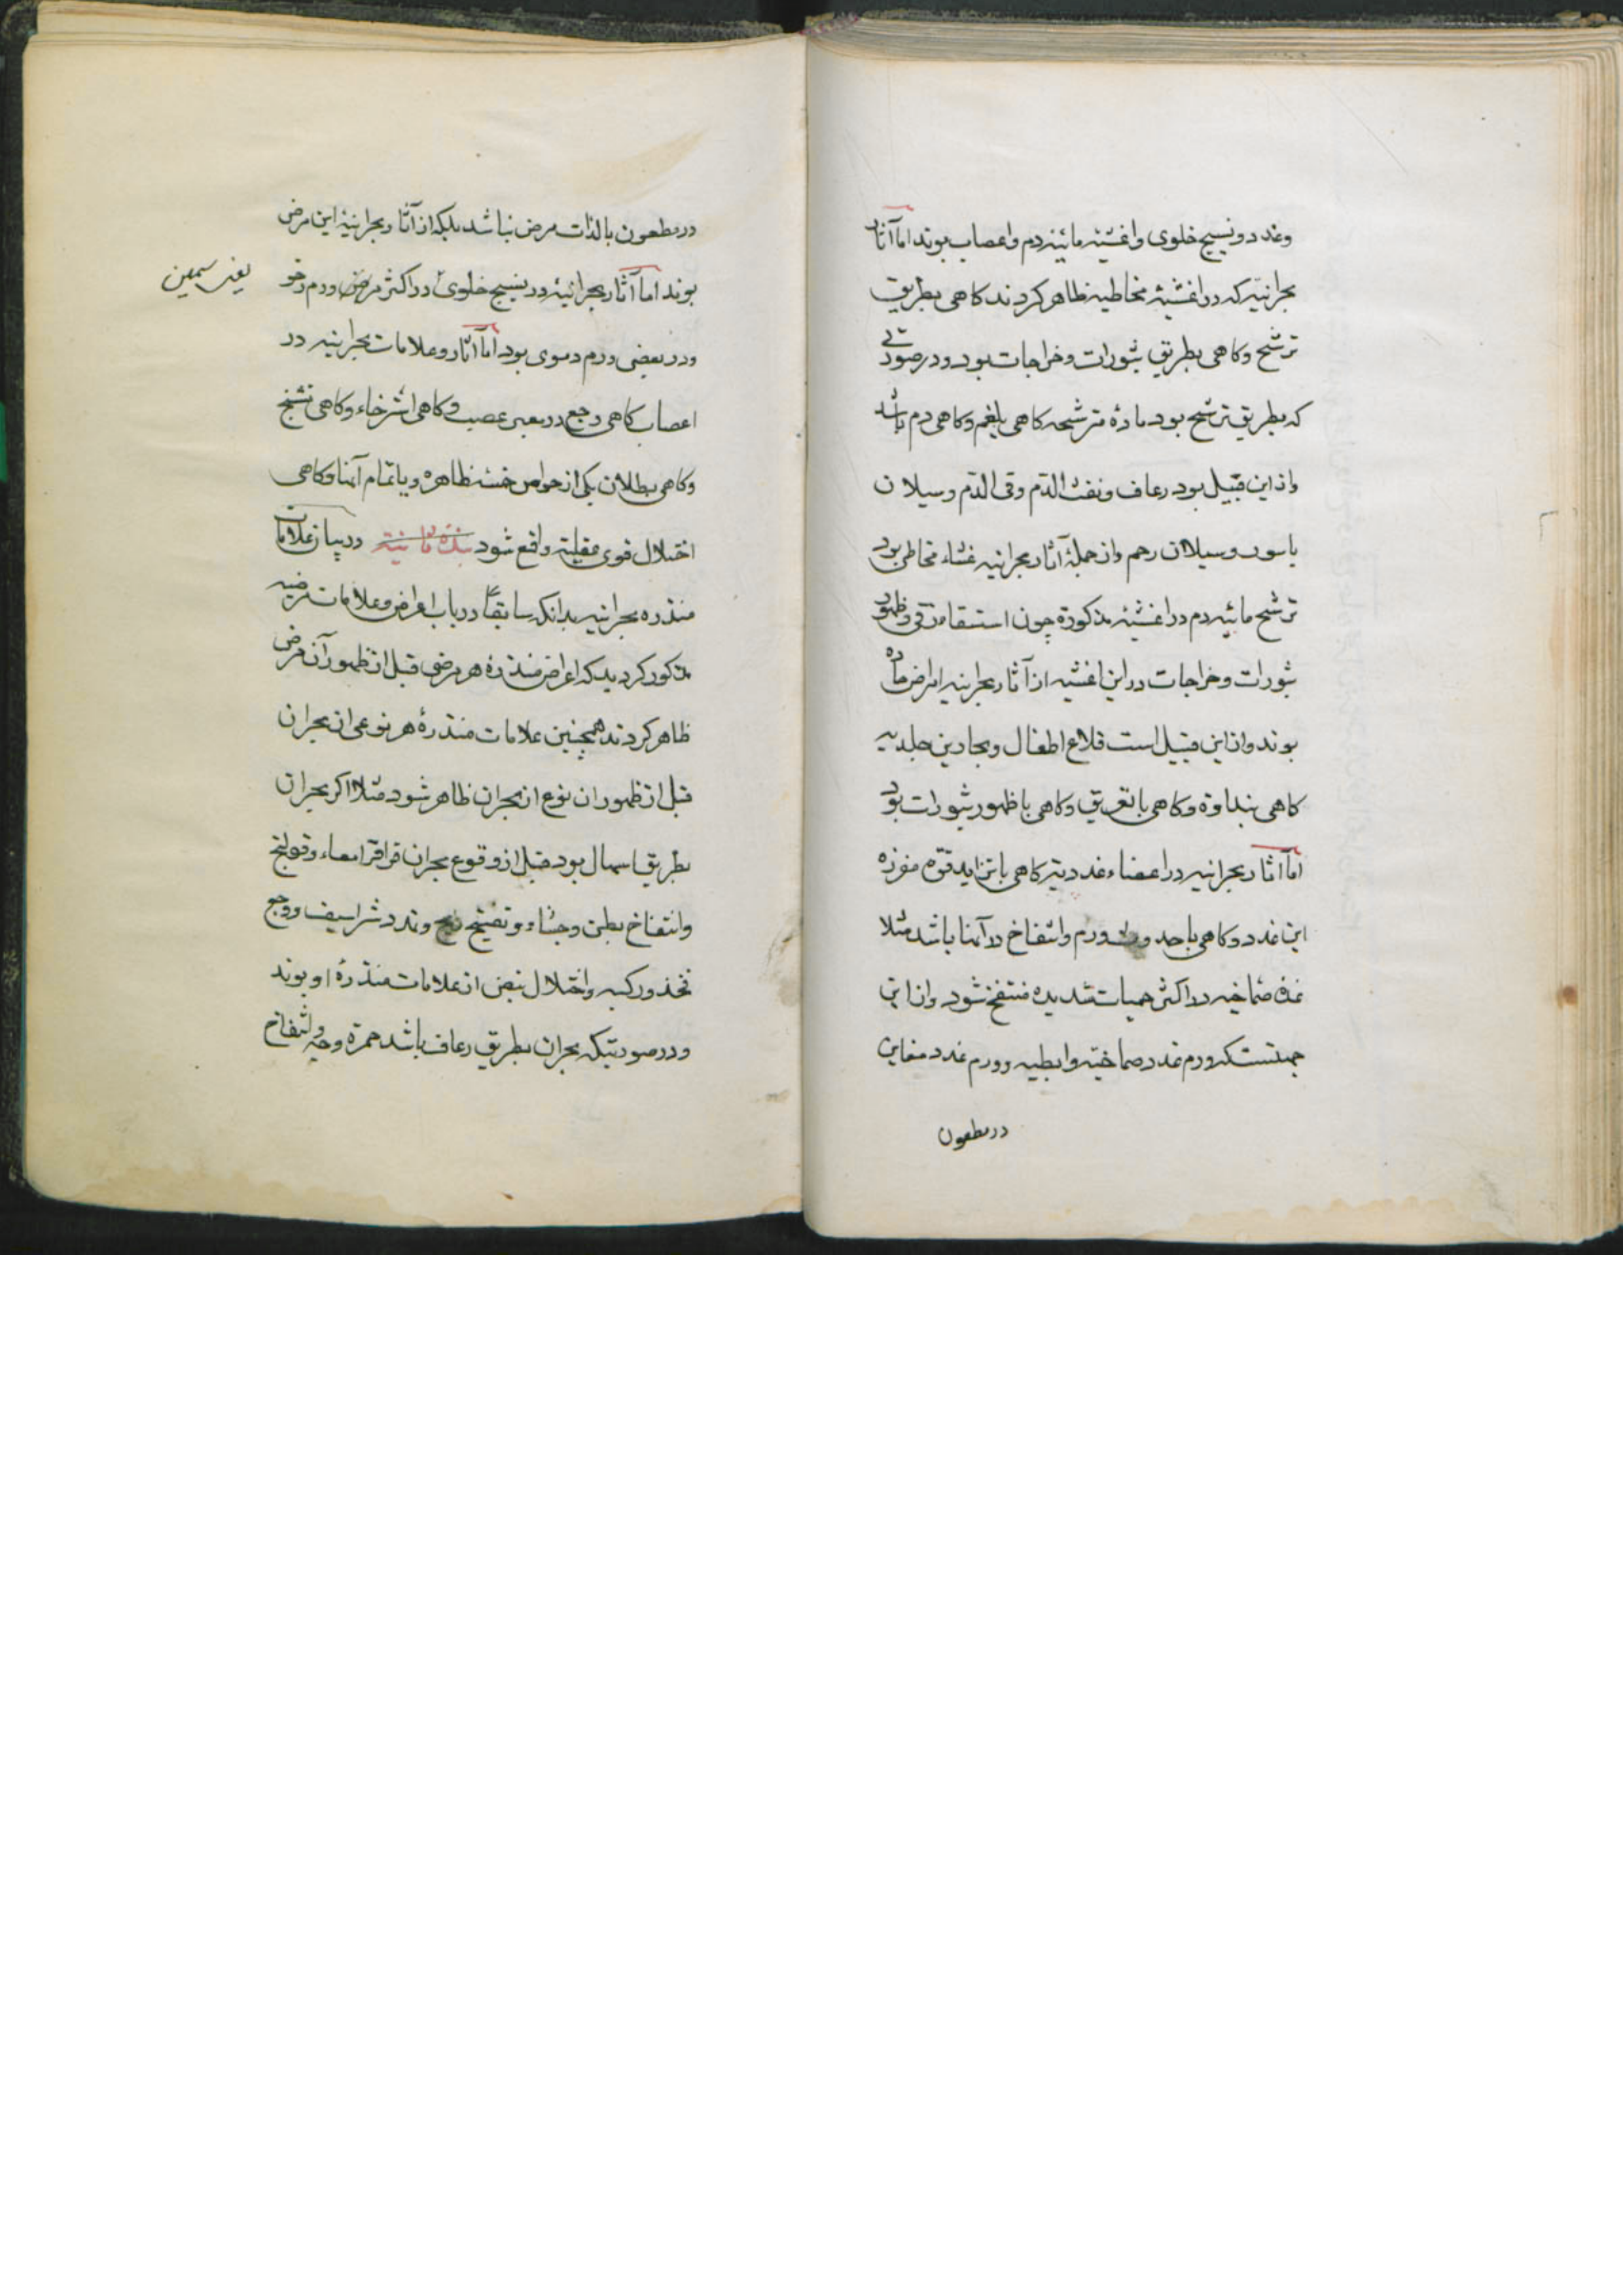 وغدد ونسیج خلوی واغشیۀ مائیه ودم واعصاب بوند اما آثار
بحرانیه که در اغشیۀ مخاطیه ظاهر کردند کاهی بطریق
ترشح وکاهی بطریق بثورات وخراجات بود ودر صورتی
که بطریق ترشح بود مادۀ مترشحه کاهی بلغم وکاهی دم باشد
واز این قبیل بود رعاف ونفث الدم وقی الدم وسیلان
باسور وسیلان رحم واز جملۀ آثار بحرانیه غشاء مخاطی بود
ترشح مائیه دم در اغشیۀ مذکوره چون استسقاء زقی وظهور
بثورات وخراجات در این اغشیه از آثار بحرانیه امراض حاده
بوند واز این قبیل است قلاع اطفال وبحارین جلدیه
کاهی بنداوة وکاهی با تعریق وکاهی با ظهور بثورات بود
اما آثار بحرانیه در اعضاء غددیه کاهی با تزاید قوۀ مفرزه
این غدد وکاهی با حدوث ورم وانتفاخ در آنها باشد مثلا
غدۀ صماخیه در اکثر حمیات شدیده منتفخ شود واز این
جهتست که ورم غدد صماخیه وابطیه وورم غدد مغابن
در مطعون
در مطعون بالذات مرض نباشد بلکه از آثار بحرانیۀ این مرض
بوند اما آثار بحرانیۀ در نسیج خلوی در اکثر مرض ورم رخو
یعنی سمین
ودر بعضی ورم دموی بود اما آثار وعلامات بحرانیه در
اعصاب کاهی وجع در معبر عصب وکاهی استرخاء وکاهی تشنج
وکاهی بطلان یکی از حواس خمسه ظاهره ویا تمام آنها وکاهی
اختلال قوی عقلیه واقع شود نبذۀ ثانیة در بیان علامات
منذره بحرانیه بدانکه سابقا در باب اعراض وعلامات مرضیه
مذکور کردید که اعراض منذرۀ هر مرضی قبل از ظهور آن مرض
ظاهر کردند همچنین علامات منذرۀ هر نوعی از بحران
قبل از ظهور ان نوع از بحران ظاهر شود مثلا اکر بحران
بطریق اسهال بود قبل از وقوع بحران قراقر امعاء وقولنج
وانتفاخ بطن وجشاء و ریح وتمدد شراسیف ووجع
فخذ ورکبه واختلال نبض از علامات منذرۀ او بوند
ودر صورتیکه بحران بطریق رعاف باشد حمرة وجه وانتفاخ